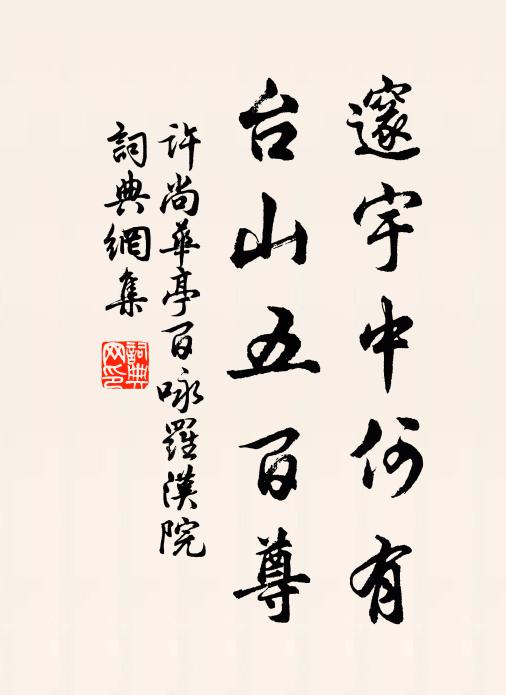 邃宇中何有
台山五百尊
許尚華亭百咏羅漢院
詞典網集
詞典
网印